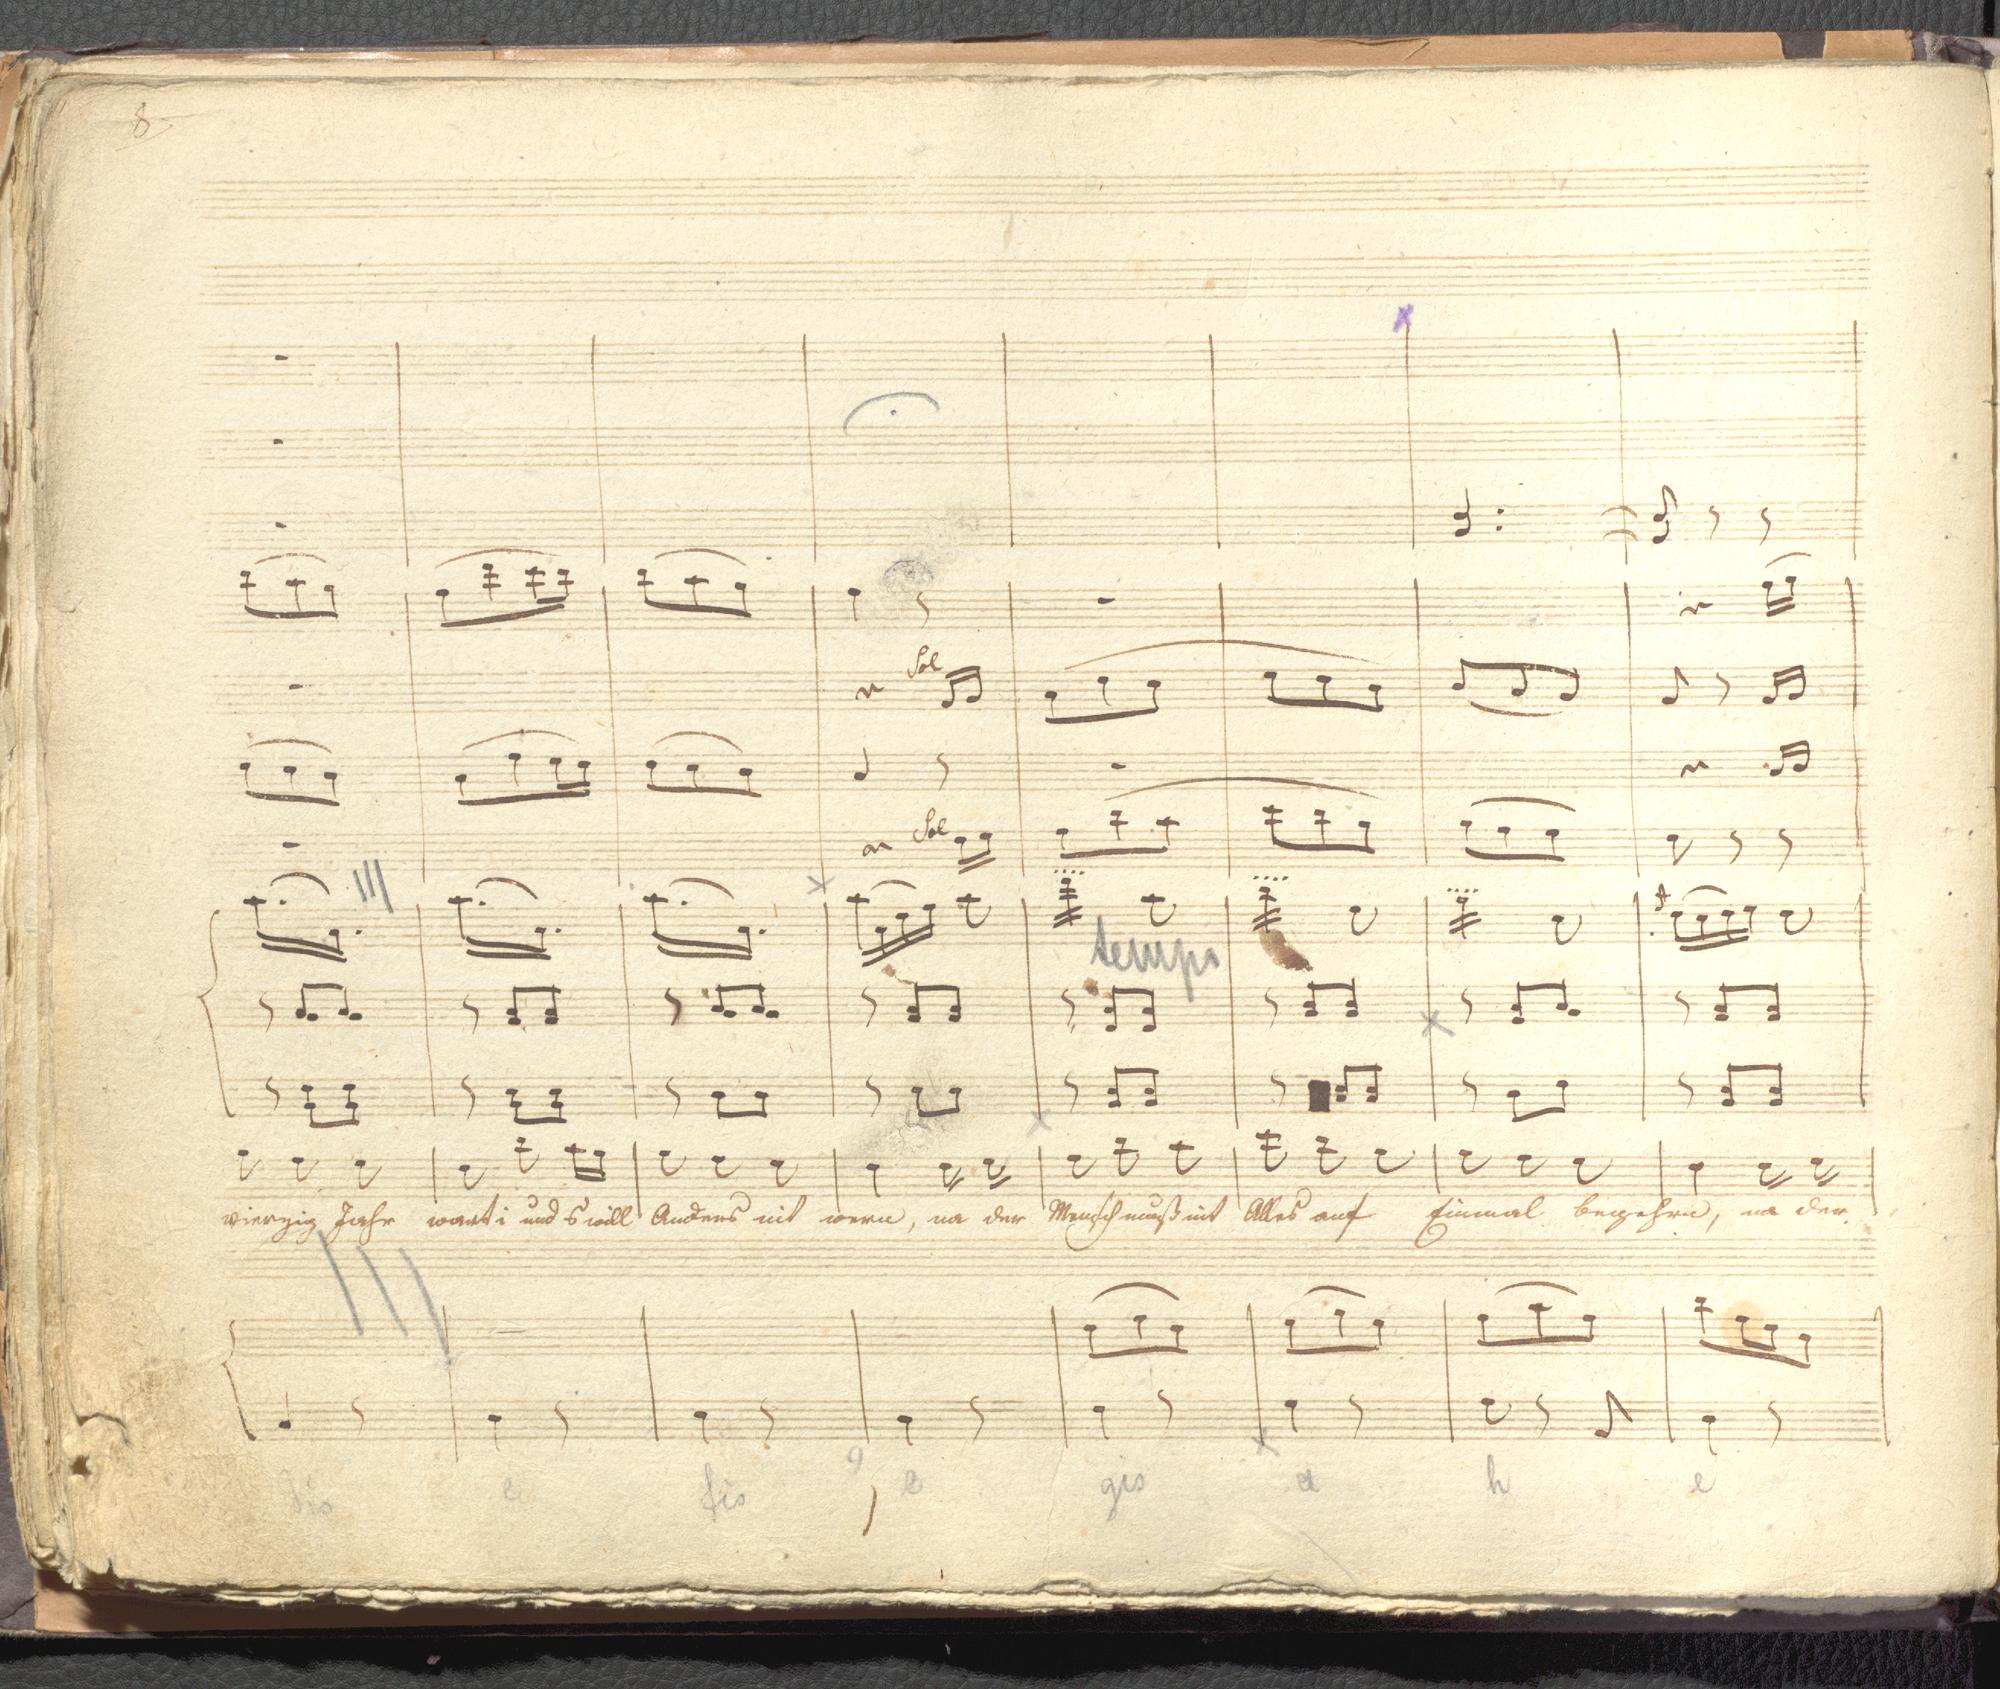 8
Sol
Sol
tempo
vierzig Jahr wart i und s will Anders nit wern, na der Mensch muß nit Alles auf Einmal begehrn, na der
dis e fis e gis a h e